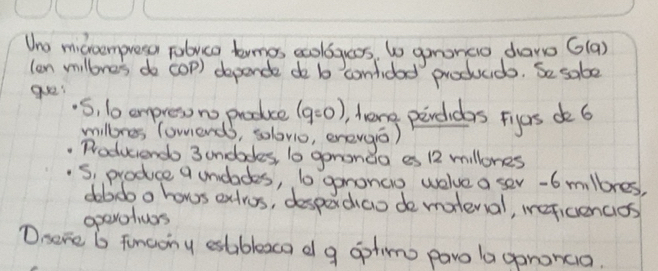 Una microempresa fabrica termos ecológicos, la ganancia diaria G(q)
(en millones de COP) depende de la cantidad producida. Se sabe
que:
• Si la empresa no produce (q=0), tiene pérdidas Fijas de 6
millones (arriendo, salario, energía)
• Produciendo 3 unidades, la ganancia es 12 millones
• Si produce 9 unidades, la ganancia vuelve a ser -6 millones,
debido a horas extras, desperdicio de material, ineficiencias
operativas
Diseñe la función y establezca el q óptimo para la ganancia.